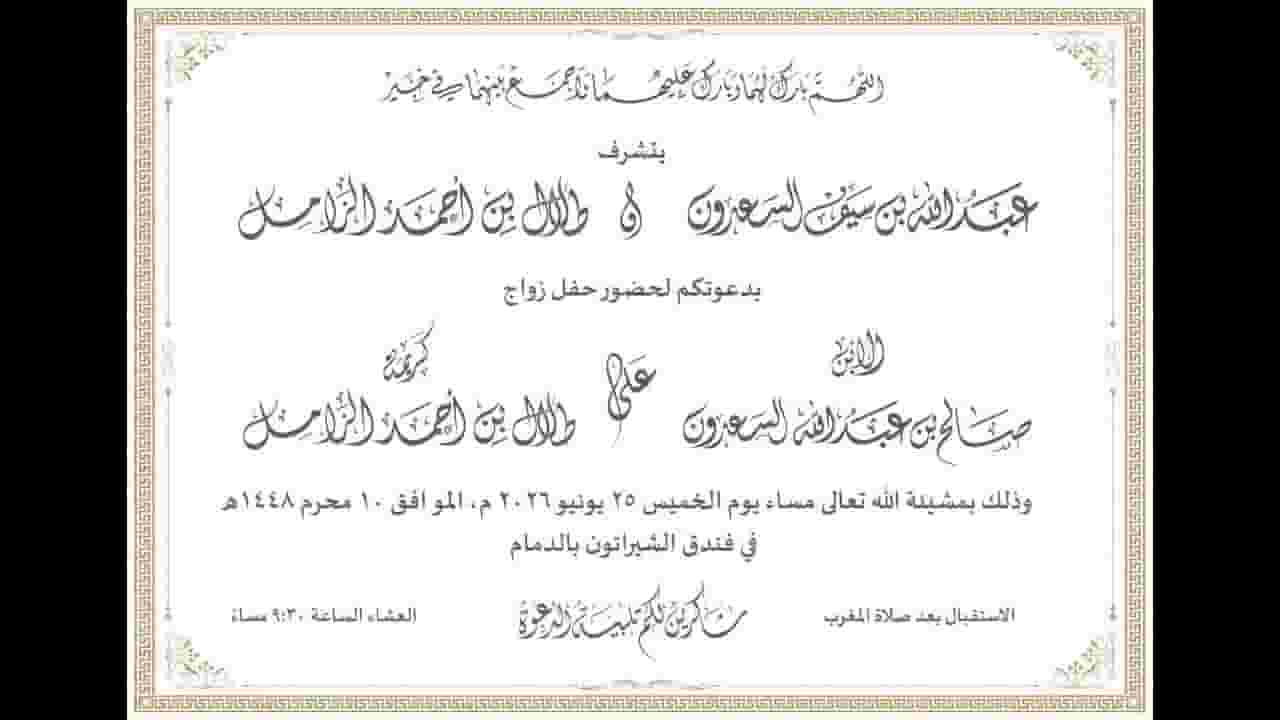 اللهم بارك لهما وبارك عليهما واجمع بينهما في خير
يتشرف
عبدالله بن سيف السعدون و طلال بن أحمد الزامل
بدعوتكم لحضور حفل زواج
الابن على كريمة
صالح بن عبدالله السعدون طلال بن أحمد الزامل
وذلك بمشيئة الله تعالى مساء يوم الخميس ٢٥ يونيو ٢٠٢٦ م، الموافق ١٠ محرم ١٤٤٨هـ
في فندق الشيراتون بالدمام
الاستقبال بعد صلاة المغرب شاكرين لكم تلبية الدعوة العشاء الساعة ٩:٣٠ مساءً